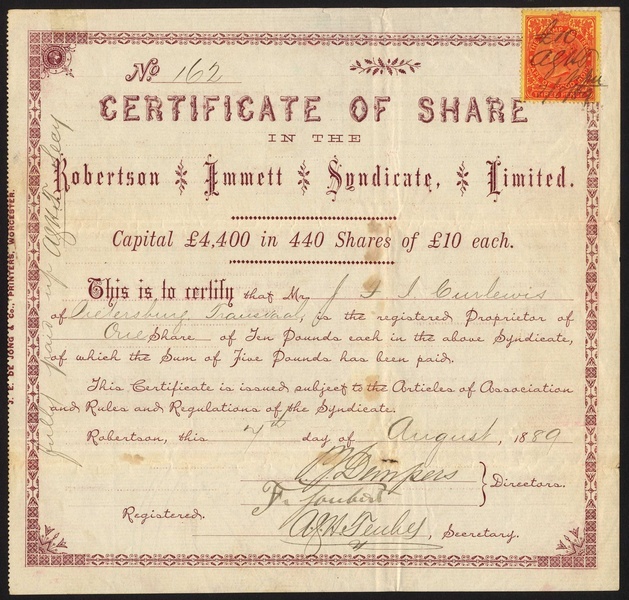 No 162
CERTIFICATE OF SHARE
IN THE
Robertson Immett Syndicate, Limited.
Capital £4,400 in 440 Shares of £10 each.
This is to certify that Mr J F J Curlewis
of Pietersburg Transvaal, is the registered Proprietor of
One Share of Ten Pounds each in the above Syndicate,
of which the Sum of Five Pounds has been paid.
This Certificate is issued subject to the Articles of Association
and Rules and Regulations of the Syndicate.
Robertson, this 7th day of August, 1889
Dempers
Directors.
F. Joubert
Registered.
Secretary.
fully paid up
J. E. DE JONG & Co., PRINTERS, WORCESTER.
£10